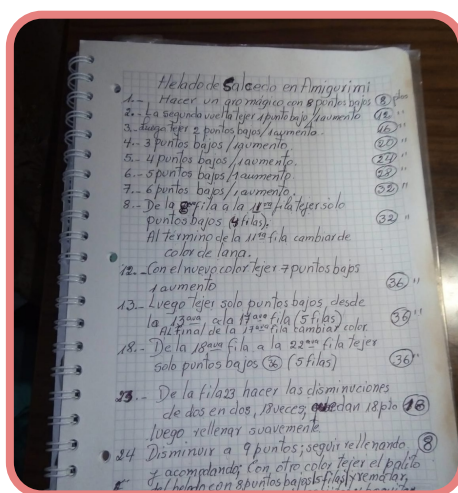 Helado de Salcedo en Amigurimi
1.- Hacer un aro mágico con 8 puntos bajos (8) ptos
2.- La segunda vuelta tejer 1 punto bajo/1 aumento (12) "
3.- Luego tejer 2 puntos bajos/1 aumento. (16) "
4.- 3 puntos bajos/1 aumento. (20) "
5.- 4 puntos bajos/1 aumento. (24) "
6.- 5 puntos bajos/1 aumento. (28) "
7.- 6 puntos bajos/1 aumento. (32) "
8.- De la 8 fila a la 11ava fila tejer solo
puntos bajos (4 filas). (32) "
Al término de la 11ava fila cambiar de
color de lana.
12.- Con el nuevo color tejer 7 puntos bajos
1 aumento (36) "
13.- Luego tejer solo puntos bajos, desde
la 13ava a la 17ava fila (5 filas) (36) "
Al final de la 17ava fila cambiar color
18.- De la 18ava fila a la 22ava fila tejer
solo puntos bajos (36) (5 filas) (36) "
23 - De la fila 23 hacer las disminuciones
de dos en dos, 18 veces, quedan 18 pto (18)
luego rellenar suavemente
24 Disminuir a 9 puntos; seguir rellenando,
y acomodando; Con otro color tejer el palito
del helado con 8 puntos bajos/5 filas/y rematar,